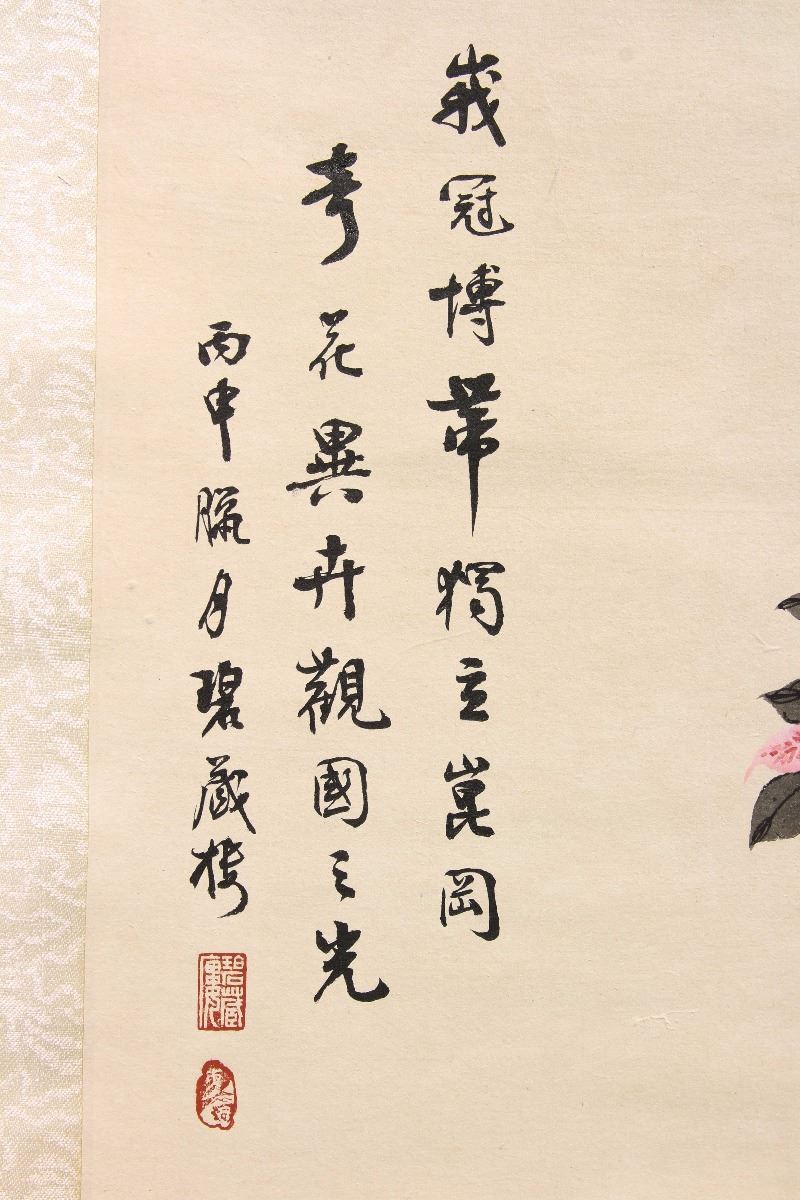 峩冠博帶獨立崑岡
奇花異卉觀國之光
丙申臘月碧葳樓
碧葳